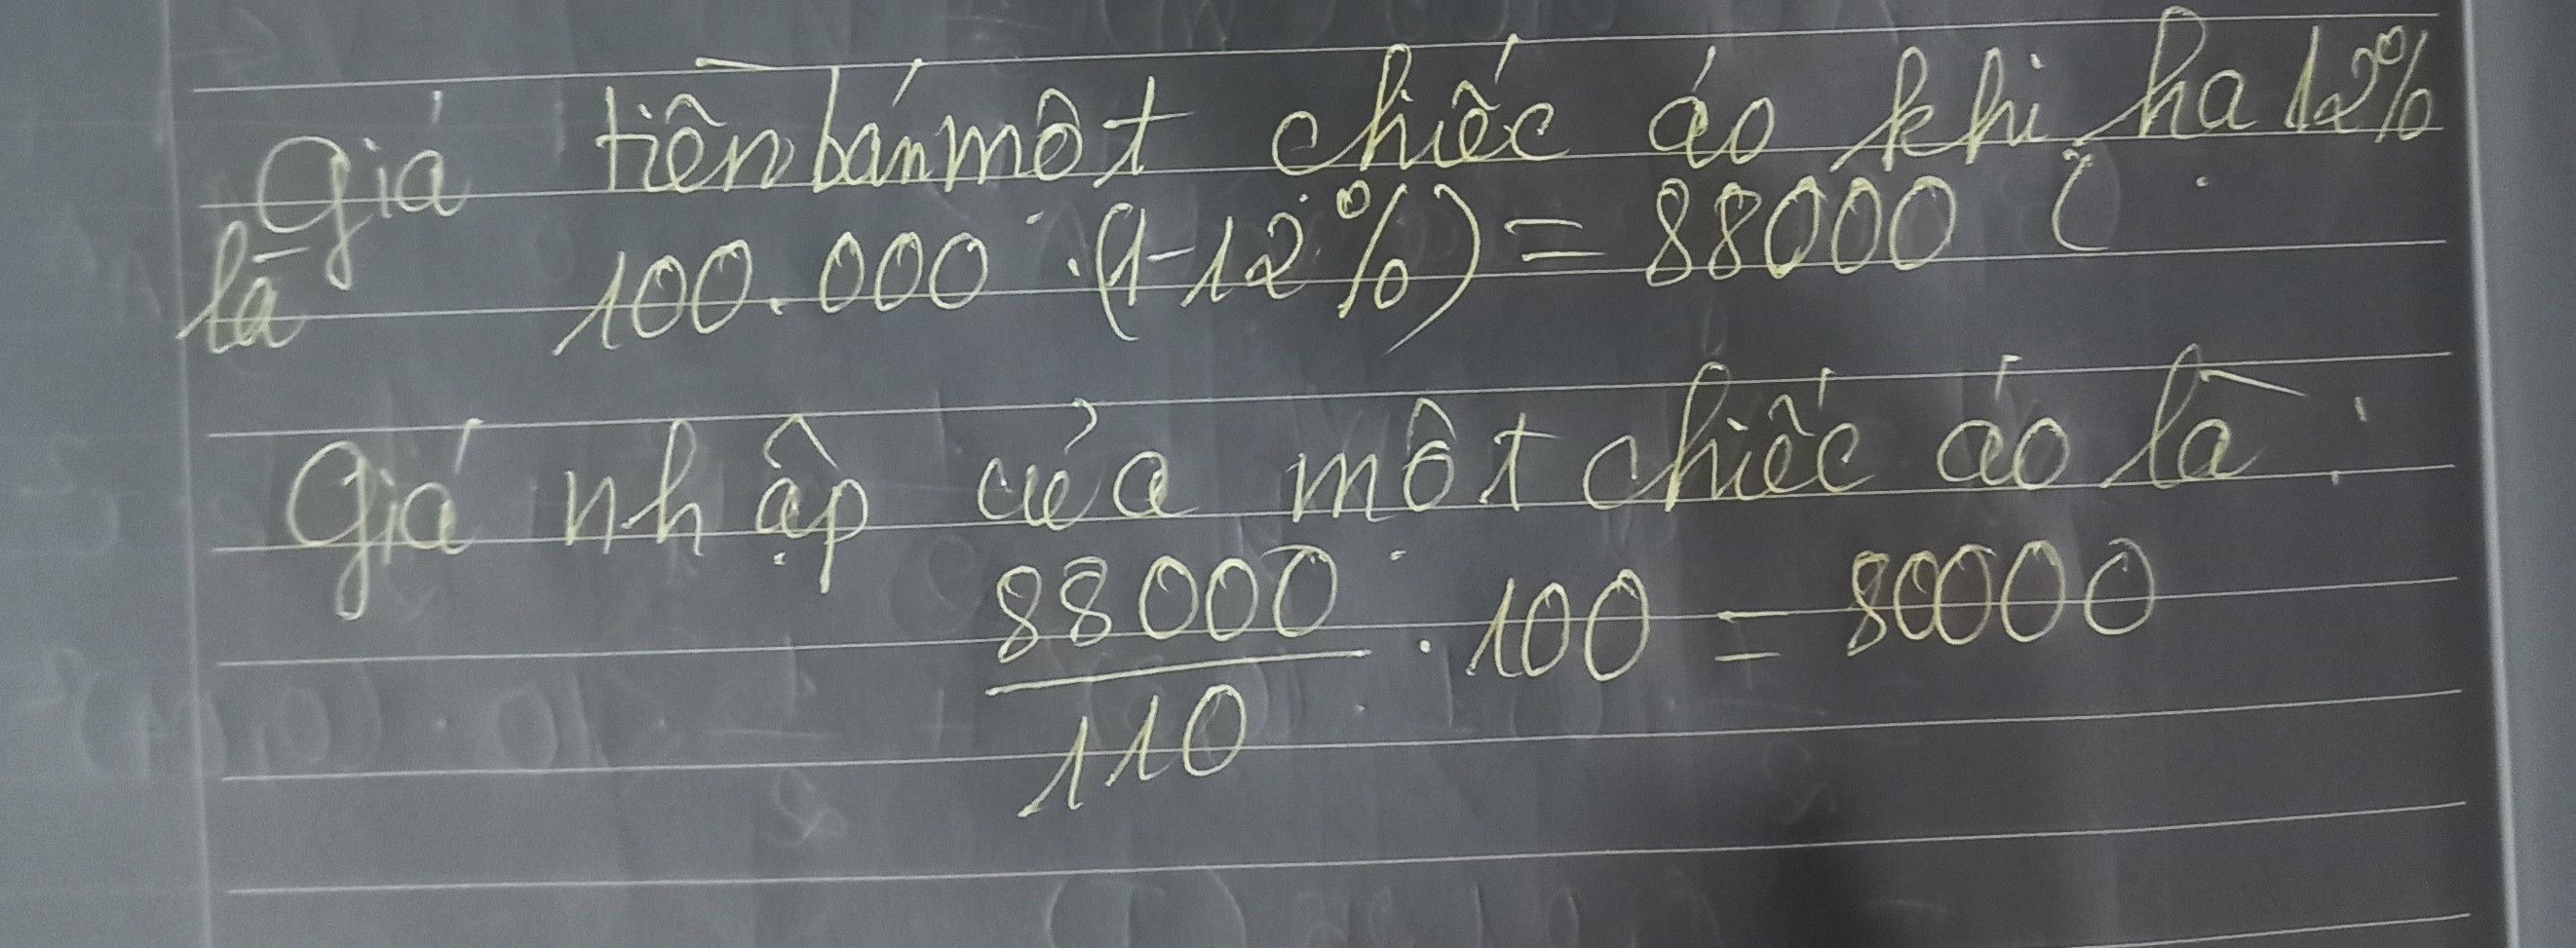 Giá tiền bán một chiếc áo khi hạ 12%
là 100.000 . (1-12%) = 88000
Giá nhập của một chiếc áo là :
88000
/110 . 100 = 80000